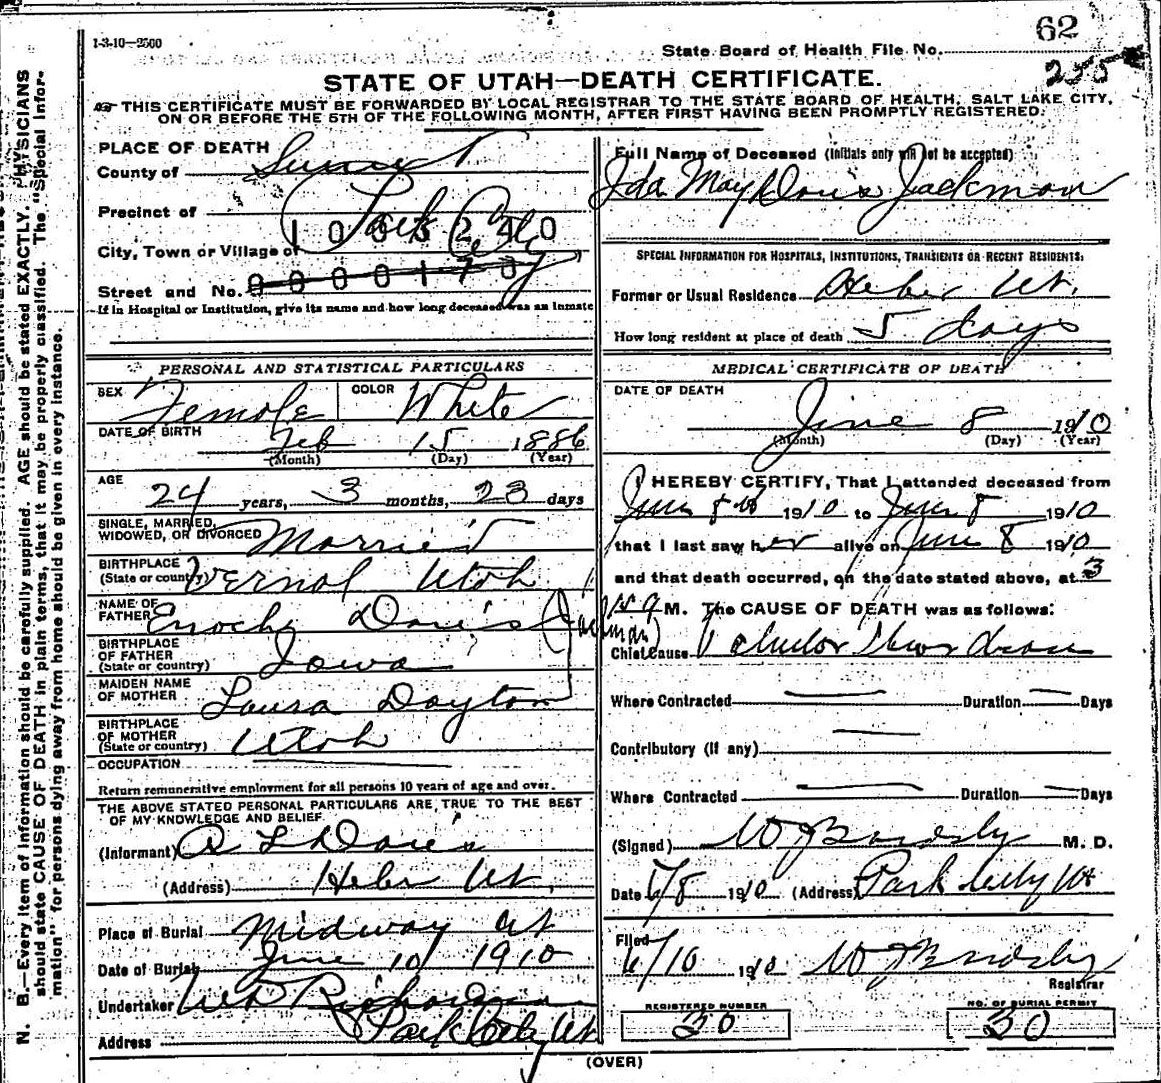 1-3-10—2500
62
State Board of Health File No.
255
STATE OF UTAH—DEATH CERTIFICATE.
THIS CERTIFICATE MUST BE FORWARDED BY LOCAL REGISTRAR TO THE STATE BOARD OF HEALTH, SALT LAKE CITY,
ON OR BEFORE THE 5TH OF THE FOLLOWING MONTH, AFTER FIRST HAVING BEEN PROMPTLY REGISTERED.
N. B.—Every item of information should be carefully supplied. AGE should be stated EXACTLY. PHYSICIANS
should state CAUSE OF DEATH in plain terms, that it may be properly classified. The "Special Infor-
mation" for persons dying away from home should be given in every instance.
PLACE OF DEATH
County of Summit
Precinct of
Park City
City, Town or Village of 1006240
Street and No. 0000170
If in Hospital or Institution, give its name and how long deceased was an inmate
PERSONAL AND STATISTICAL PARTICULARS
SEX Female COLOR White
DATE OF BIRTH Feb 15 1886
(Month) (Day) (Year)
AGE
24 years, 3 months, 23 days
SINGLE, MARRIED,
WIDOWED, OR DIVORCED Married
BIRTHPLACE
(State or country) Vernal Utah
NAME OF
FATHER Enoch Davis
BIRTHPLACE
OF FATHER
(State or country) Iowa
MAIDEN NAME
OF MOTHER Laura Dayton
BIRTHPLACE
OF MOTHER
(State or country) Utah
OCCUPATION
Return remunerative employment for all persons 10 years of age and over.
THE ABOVE STATED PERSONAL PARTICULARS ARE TRUE TO THE BEST
OF MY KNOWLEDGE AND BELIEF
(Informant) A L Davis
(Address) Heber Ut.
Place of Burial Midway Ut
Date of Burial June 10 1910
Undertaker Richardson
Address Park City Ut
Full Name of Deceased (Initials only will not be accepted)
Ida May Davis Jackman
SPECIAL INFORMATION FOR HOSPITALS, INSTITUTIONS, TRANSIENTS OR RECENT RESIDENTS:
Former or Usual Residence Heber Ut.
How long resident at place of death 5 days
MEDICAL CERTIFICATE OF DEATH
DATE OF DEATH
June 8 1910
(Month) (Day) (Year)
I HEREBY CERTIFY, That I attended deceased from
June 8th 1910 to June 8 1910
that I last saw her alive on June 8 1910
and that death occurred, on the date stated above, at 3
M. The CAUSE OF DEATH was as follows:
Chief Cause
Where Contracted Duration Days
Contributory (if any)
Where Contracted Duration Days
(Signed) M. D.
Date 6/8 1910 (Address) Park City Ut
Filed
6/10 1910
Registrar
REGISTERED NUMBER
30
NO. OF BURIAL PERMIT
30
(OVER)